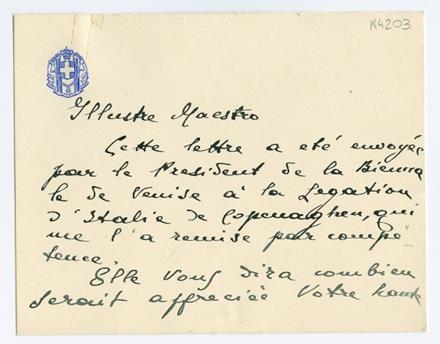 K4203
Illustre Maestro
Cette lettre a eté envoyée
par le President de la Bienna
le de Venise à la Legation
d'Italie de Copenaghen, qui
me l'a remise par compé
tence.
Elle Vous dira combien
serait affreciée Votre haute